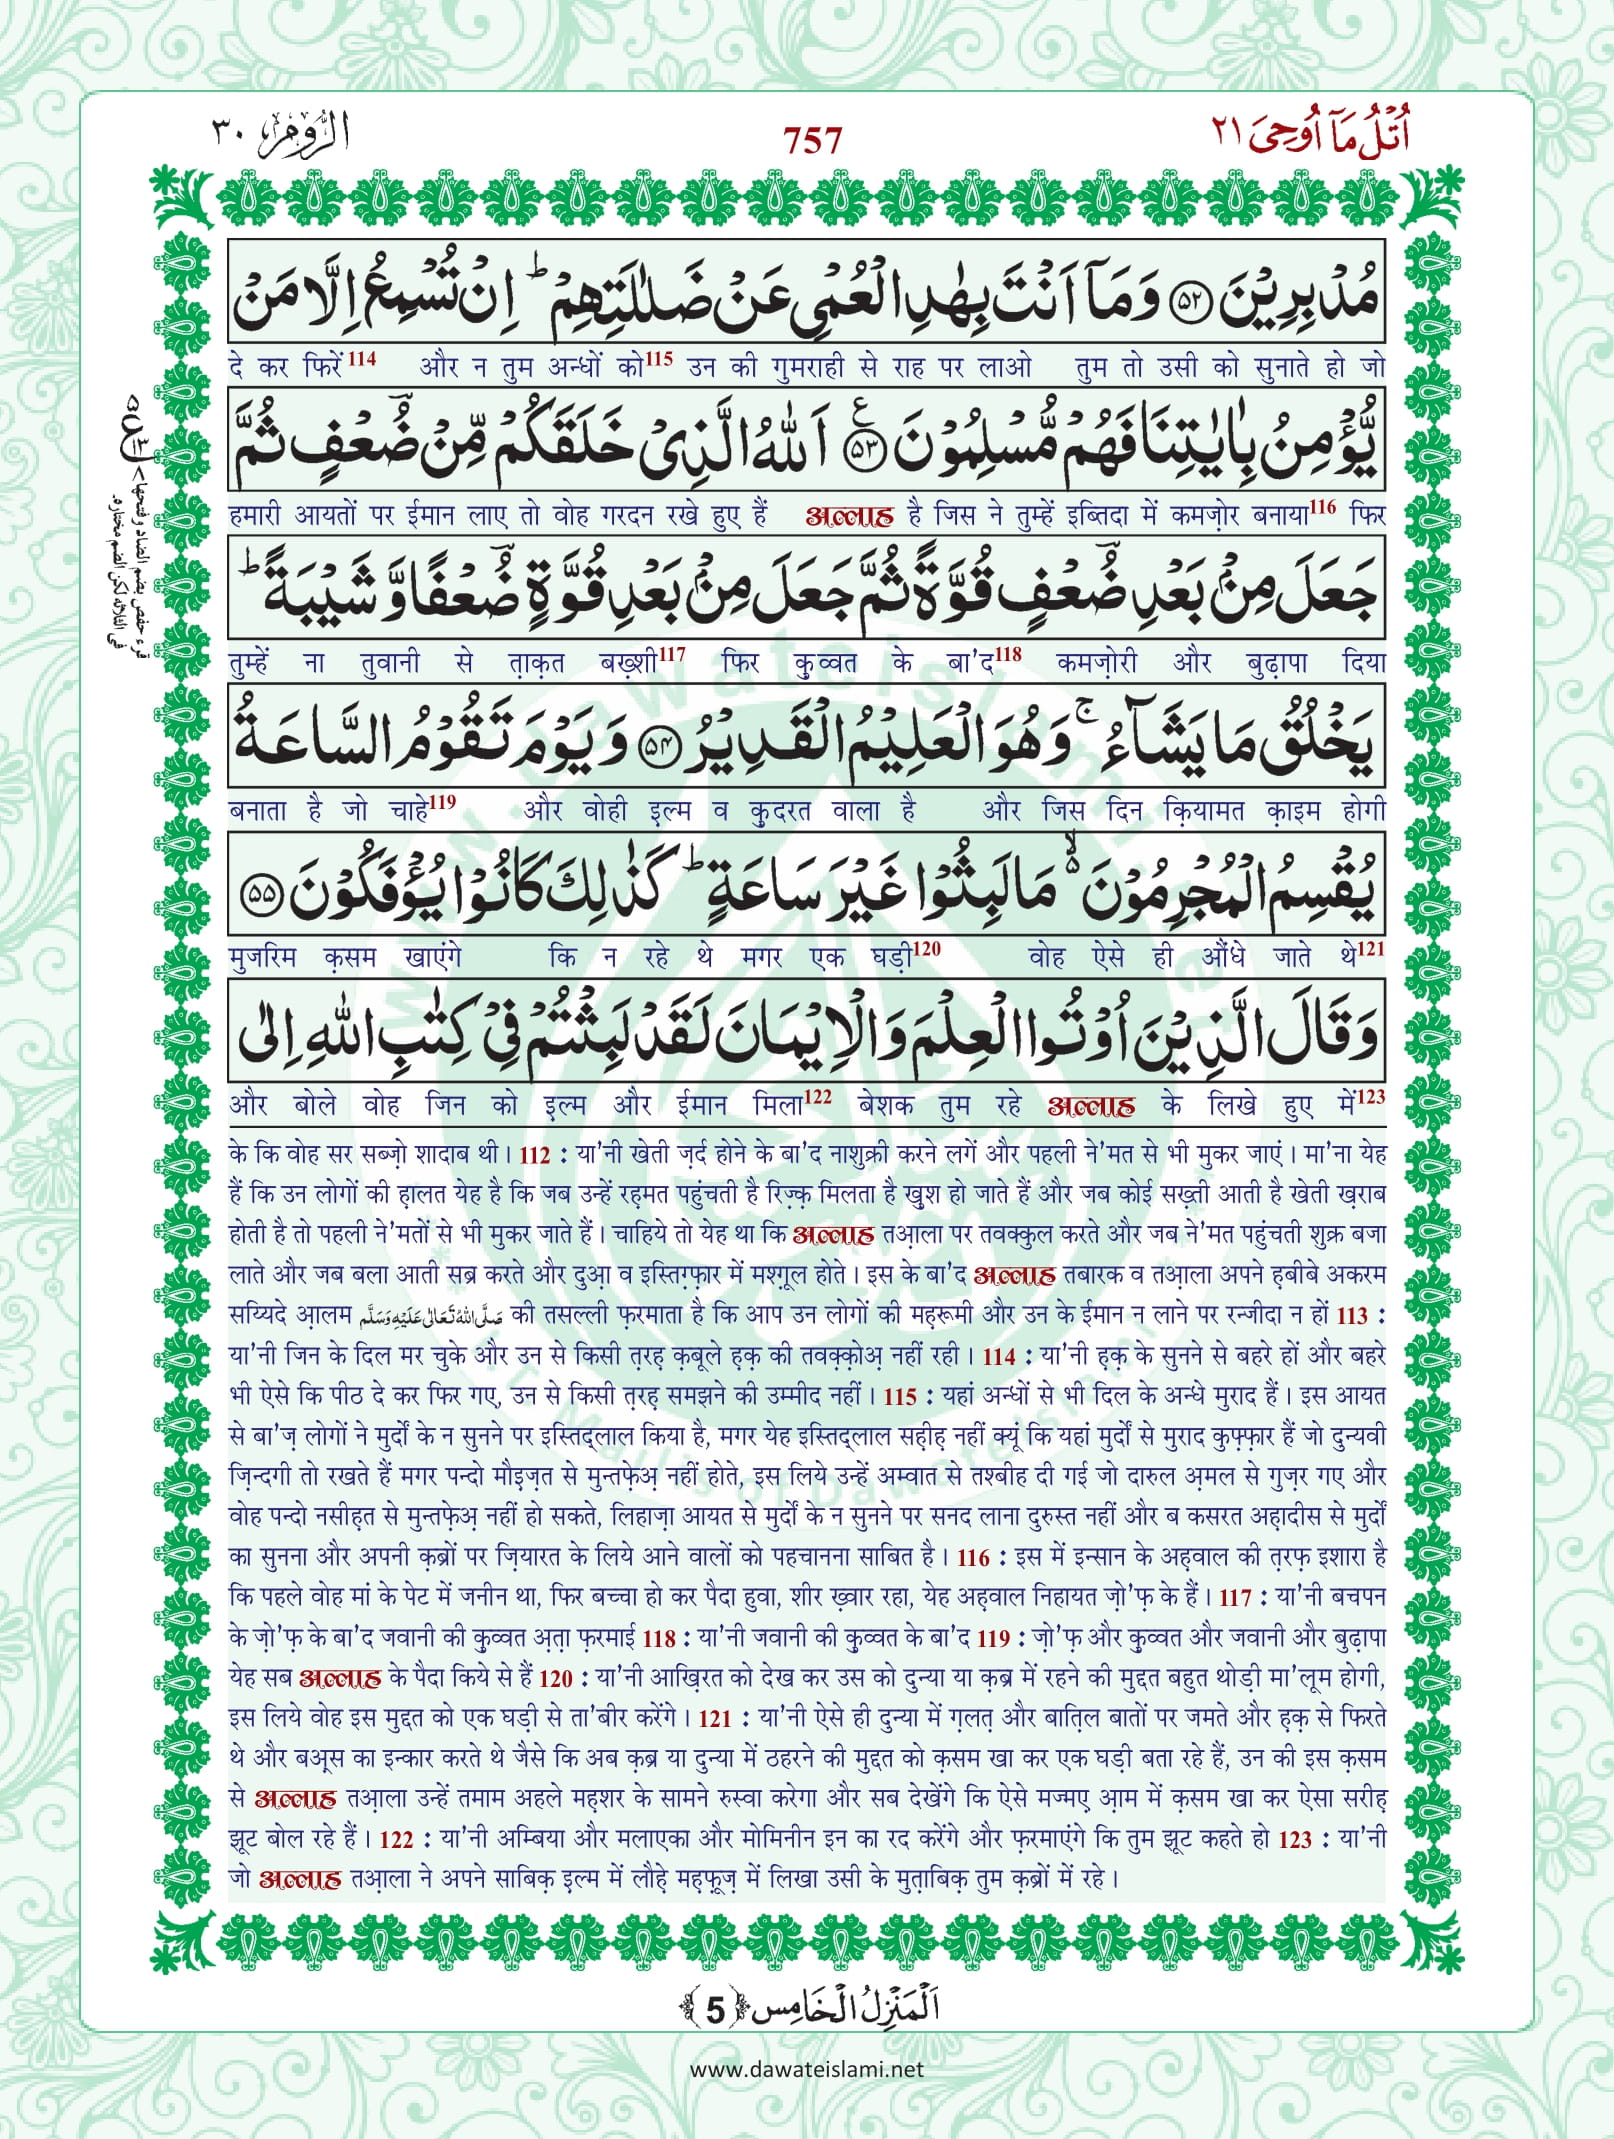 اُتْلُ مَاۤ اُوْحِیَ ٢١
757
الرُّوْمِ ٣٠
مُدْبِرِیْنَ ﴿۵۲﴾ وَمَاۤ اَنْتَ بِهٰدِ الْعُمْیِ عَنْ ضَلٰلَتِهِمْ ؕ اِنْ تُسْمِعُ اِلَّا مَنْ
दे कर फिरें114 और न तुम अन्धों को115 उन की गुमराही से राह पर लाओ तुम तो उसी को सुनाते हो जो
یُّؤْمِنُ بِاٰیٰتِنَا فَهُمْ مُّسْلِمُوْنَ ﴿۵۳﴾ اَللّٰهُ الَّذِیْ خَلَقَكُمْ مِّنْ ضُعْفٍ ثُمَّ
हमारी आयतों पर ईमान लाए तो वोह गरदन रखे हुए हैं अल्लाह है जिस ने तुम्हें इब्तिदा में कमज़ोर बनाया116 फिर
جَعَلَ مِنْۢ بَعْدِ ضُعْفٍ قُوَّةً ثُمَّ جَعَلَ مِنْۢ بَعْدِ قُوَّةٍ ضُعْفًا وَّ شَیْبَةً ؕ
तुम्हें ना तुवानी से त़ाक़त बख़्शी117 फिर क़ुव्वत के बा'द118 कमज़ोरी और बुढ़ापा दिया
یَخْلُقُ مَا یَشَآءُ ۚ وَهُوَ الْعَلِیْمُ الْقَدِیْرُ ﴿۵۴﴾ وَیَوْمَ تَقُوْمُ السَّاعَةُ
बनाता है जो चाहे119 और वोही इ़ल्म व क़ुदरत वाला है और जिस दिन क़ियामत क़ाइम होगी
یُقْسِمُ الْمُجْرِمُوْنَ ۬ۙ مَا لَبِثُوْا غَیْرَ سَاعَةٍ ؕ كَذٰلِكَ كَانُوْا یُؤْفَكُوْنَ ﴿۵۵﴾
मुजरिम क़सम खाएंगे कि न रहे थे मगर एक घड़ी120 वोह ऐसे ही औंधे जाते थे121
وَقَالَ الَّذِیْنَ اُوْتُوا الْعِلْمَ وَالْاِیْمَانَ لَقَدْ لَبِثْتُمْ فِیْ كِتٰبِ اللّٰهِ اِلٰی
और बोले वोह जिन को इ़ल्म और ईमान मिला122 बेशक तुम रहे अल्लाह के लिखे हुए में123
के कि वोह सर सब्ज़ो शादाब थी। 112 : या'नी खेती ज़र्द होने के बा'द नाशुक्री करने लगें और पहली ने'मत से भी मुकर जाएं। मा'ना येह
हैं कि उन लोगों की ह़ालत येह है कि जब उन्हें रह़मत पहुंचती है रिज़्क़ मिलता है ख़ुश हो जाते हैं और जब कोई सख़्ती आती है खेती ख़राब
होती है तो पहली ने'मतों से भी मुकर जाते हैं। चाहिये तो येह था कि अल्लाह तआ़ला पर तवक्कुल करते और जब ने'मत पहुंचती शुक्र बजा
लाते और जब बला आती सब्र करते और दुआ़ व इस्तिग़्फ़ार में मश्ग़ूल होते। इस के बा'द अल्लाह तबारक व तआ़ला अपने ह़बीबे अकरम
सय्यिदे आ़लम صَلَّى اللهُ تَعَالٰى عَلَيْهِ وَسَلَّم की तसल्ली फ़रमाता है कि आप उन लोगों की मह़रूमी और उन के ईमान न लाने पर रन्जीदा न हों 113 :
या'नी जिन के दिल मर चुके और उन से किसी त़रह़ क़बूले ह़क़ की तवक़्क़ोअ़ नहीं रही। 114 : या'नी ह़क़ के सुनने से बहरे हों और बहरे
भी ऐसे कि पीठ दे कर फिर गए, उन से किसी त़रह़ समझने की उम्मीद नहीं। 115 : यहां अन्धों से भी दिल के अन्धे मुराद हैं। इस आयत
से बा'ज़ लोगों ने मुर्दों के न सुनने पर इस्तिद्लाल किया है, मगर येह इस्तिद्लाल सह़ीह़ नहीं क्यूं कि यहां मुर्दों से मुराद कुफ़्फ़ार हैं जो दुन्यवी
ज़िन्दगी तो रखते हैं मगर पन्दो मौइ़ज़त से मुन्तफ़ेअ़ नहीं होते, इस लिये उन्हें अम्वात से तश्बीह दी गई जो दारुल अ़मल से गुज़र गए और
वोह पन्दो नसीह़त से मुन्तफ़ेअ़ नहीं हो सकते, लिहाज़ा आयत से मुर्दों के न सुनने पर सनद लाना दुरुस्त नहीं और ब कसरत अह़ादीस से मुर्दों
का सुनना और अपनी क़ब्रों पर ज़ियारत के लिये आने वालों को पहचानना साबित है। 116 : इस में इन्सान के अह़वाल की त़रफ़ इशारा है
कि पहले वोह मां के पेट में जनीन था, फिर बच्चा हो कर पैदा हुवा, शीर ख़्वार रहा, येह अह़वाल निहायत ज़ो'फ़ के हैं। 117 : या'नी बचपन
के ज़ो'फ़ के बा'द जवानी की क़ुव्वत अ़त़ा फ़रमाई 118 : या'नी जवानी की क़ुव्वत के बा'द 119 : ज़ो'फ़ और क़ुव्वत और जवानी और बुढ़ापा
येह सब अल्लाह के पैदा किये से हैं 120 : या'नी आख़िरत को देख कर उस को दुन्या या क़ब्र में रहने की मुद्दत बहुत थोड़ी मा'लूम होगी,
इस लिये वोह इस मुद्दत को एक घड़ी से ता'बीर करेंगे। 121 : या'नी ऐसे ही दुन्या में ग़लत़ और बात़िल बातों पर जमते और ह़क़ से फिरते
थे और बअ़्स का इन्कार करते थे जैसे कि अब क़ब्र या दुन्या में ठहरने की मुद्दत को क़सम खा कर एक घड़ी बता रहे हैं, उन की इस क़सम
से अल्लाह तआ़ला उन्हें तमाम अहले मह़शर के सामने रुस्वा करेगा और सब देखेंगे कि ऐसे मज्मए आ़म में क़सम खा कर ऐसा सरीह़
झूट बोल रहे हैं। 122 : या'नी अम्बिया और मलाएका और मोमिनीन इन का रद करेंगे और फ़रमाएंगे कि तुम झूट कहते हो 123 : या'नी
जो अल्लाह तआ़ला ने अपने साबिक़ इ़ल्म में लौह़े मह़फ़ूज़ में लिखा उसी के मुत़ाबिक़ तुम क़ब्रों में रहे।
قرء حفص بضم الضاد وفتحها
فی الثلاثة لكن الضم مختار
اَلْمَنْزِلُ الْخَامِس ﴿5﴾
www.dawateislami.net